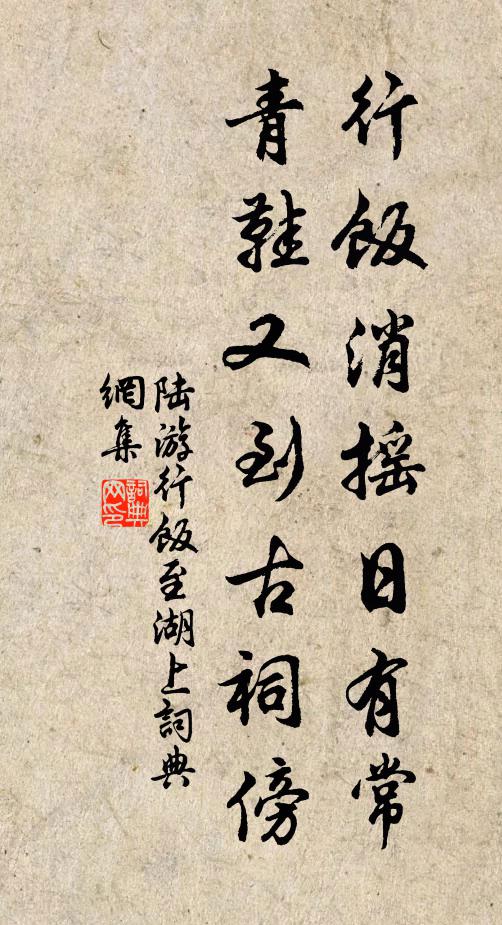 行飯消摇日有常
青鞋又到古祠傍
陆游行飯至湖上詞典
網集
詞典
网印